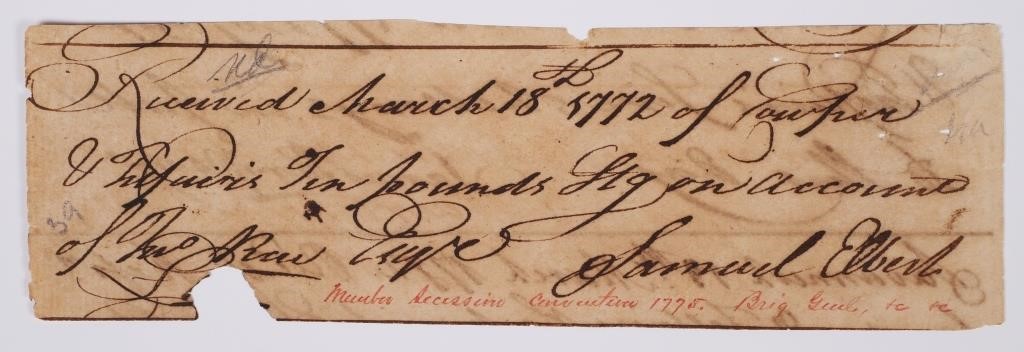 Received March 18th 1772 of Cowper
& Telfairs Ten pounds Stg on Account
of Thos Rae Esqre Samuel Elbert
Member Secession Convention 1775. Brig Genl, &c &c
39